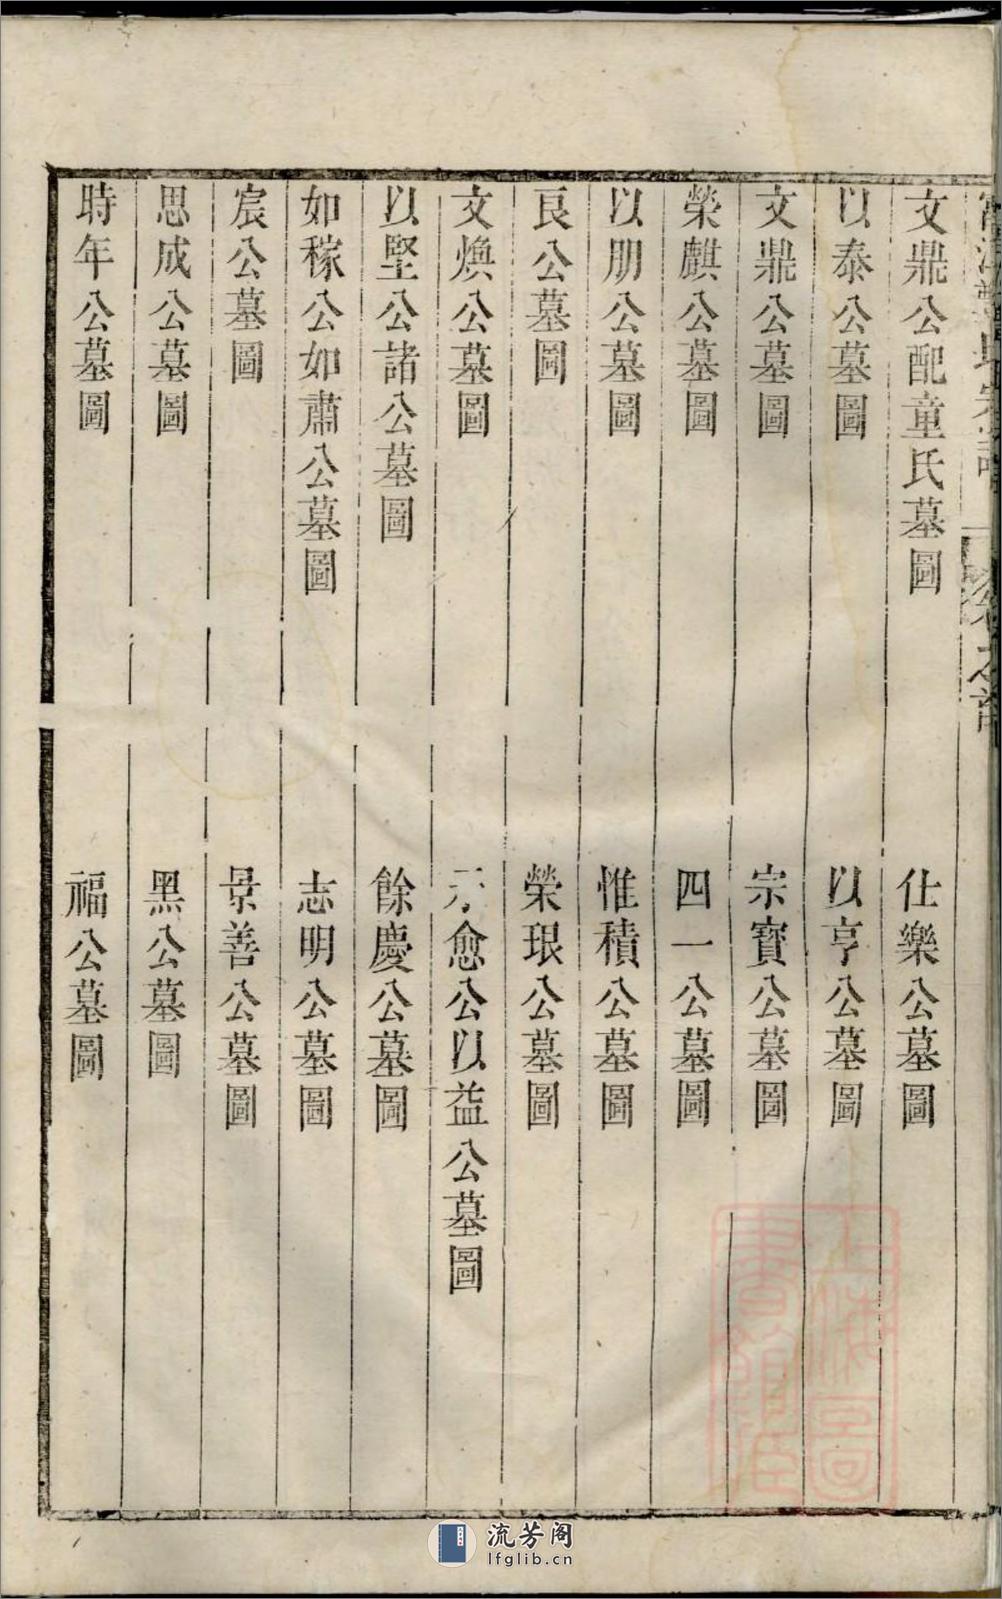 文鼎公配童氏墓圖
仕樂公墓圖
以泰公墓圖
以亨公墓圖
文鼎公墓圖
宗寶公墓圖
榮麒公墓圖
四一公墓圖
以朋公墓圖
惟積公墓圖
良公墓圖
榮珢公墓圖
文煥公墓圖
愈公以益公墓圖
以堅公諸公墓圖
餘慶公墓圖
如稼公如肅公墓圖
志明公墓圖
宸公墓圖
景善公墓圖
思成公墓圖
黑公墓圖
時年公墓圖
福公墓圖
流芳阁
lfglib.cn